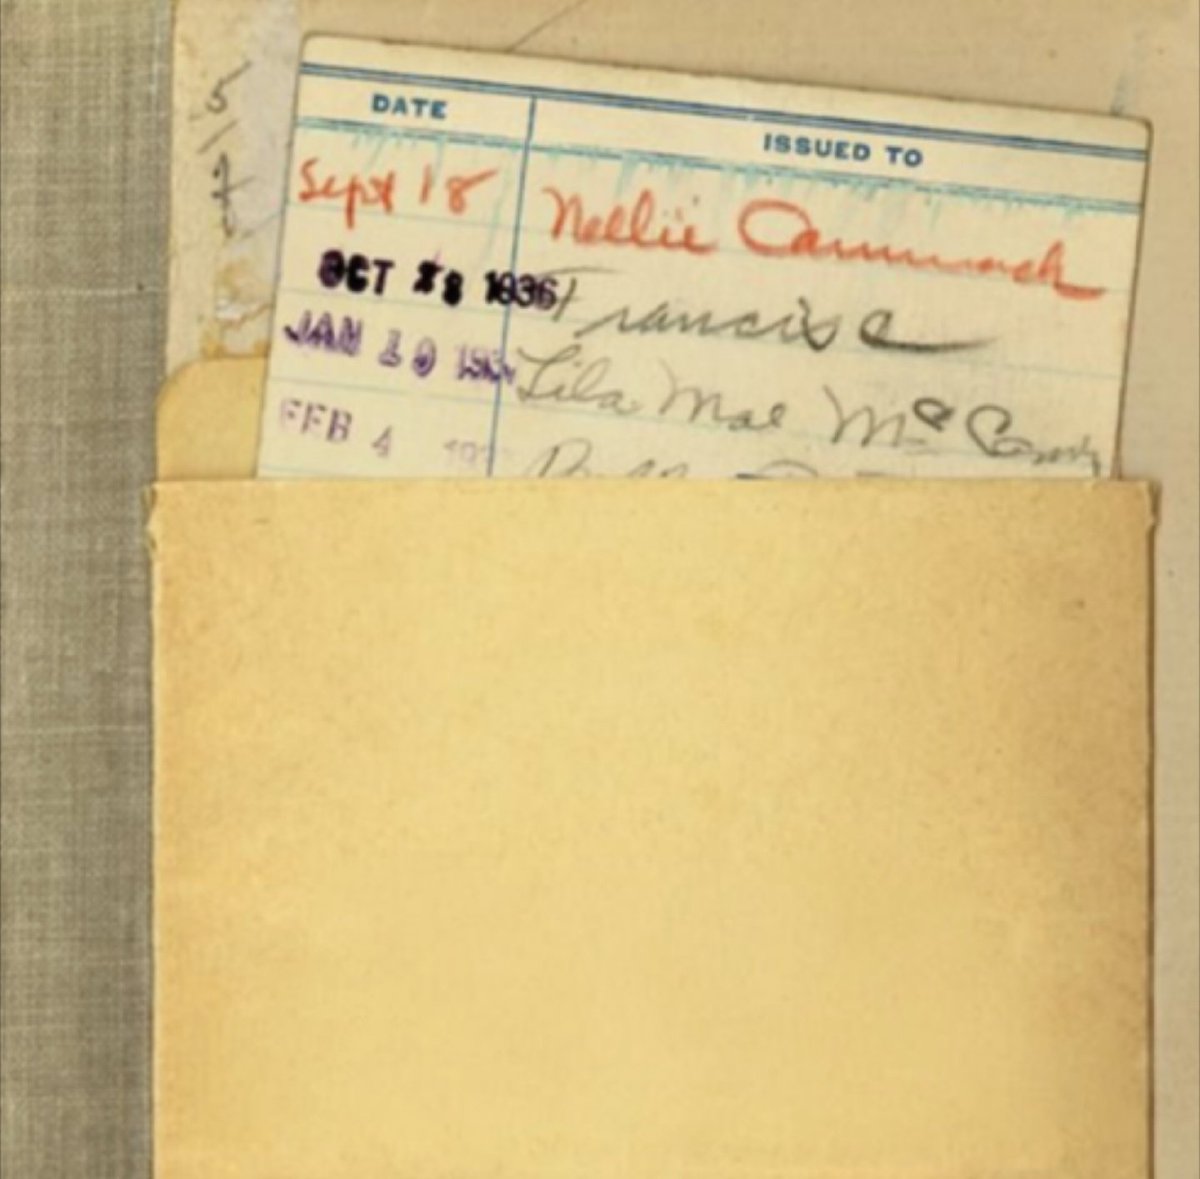 DATE ISSUED TO
Sept 18 Nellie Cammack
OCT 28 1936 Francis C
JAN 19 193 Lila Mae Mc
FEB 4 193